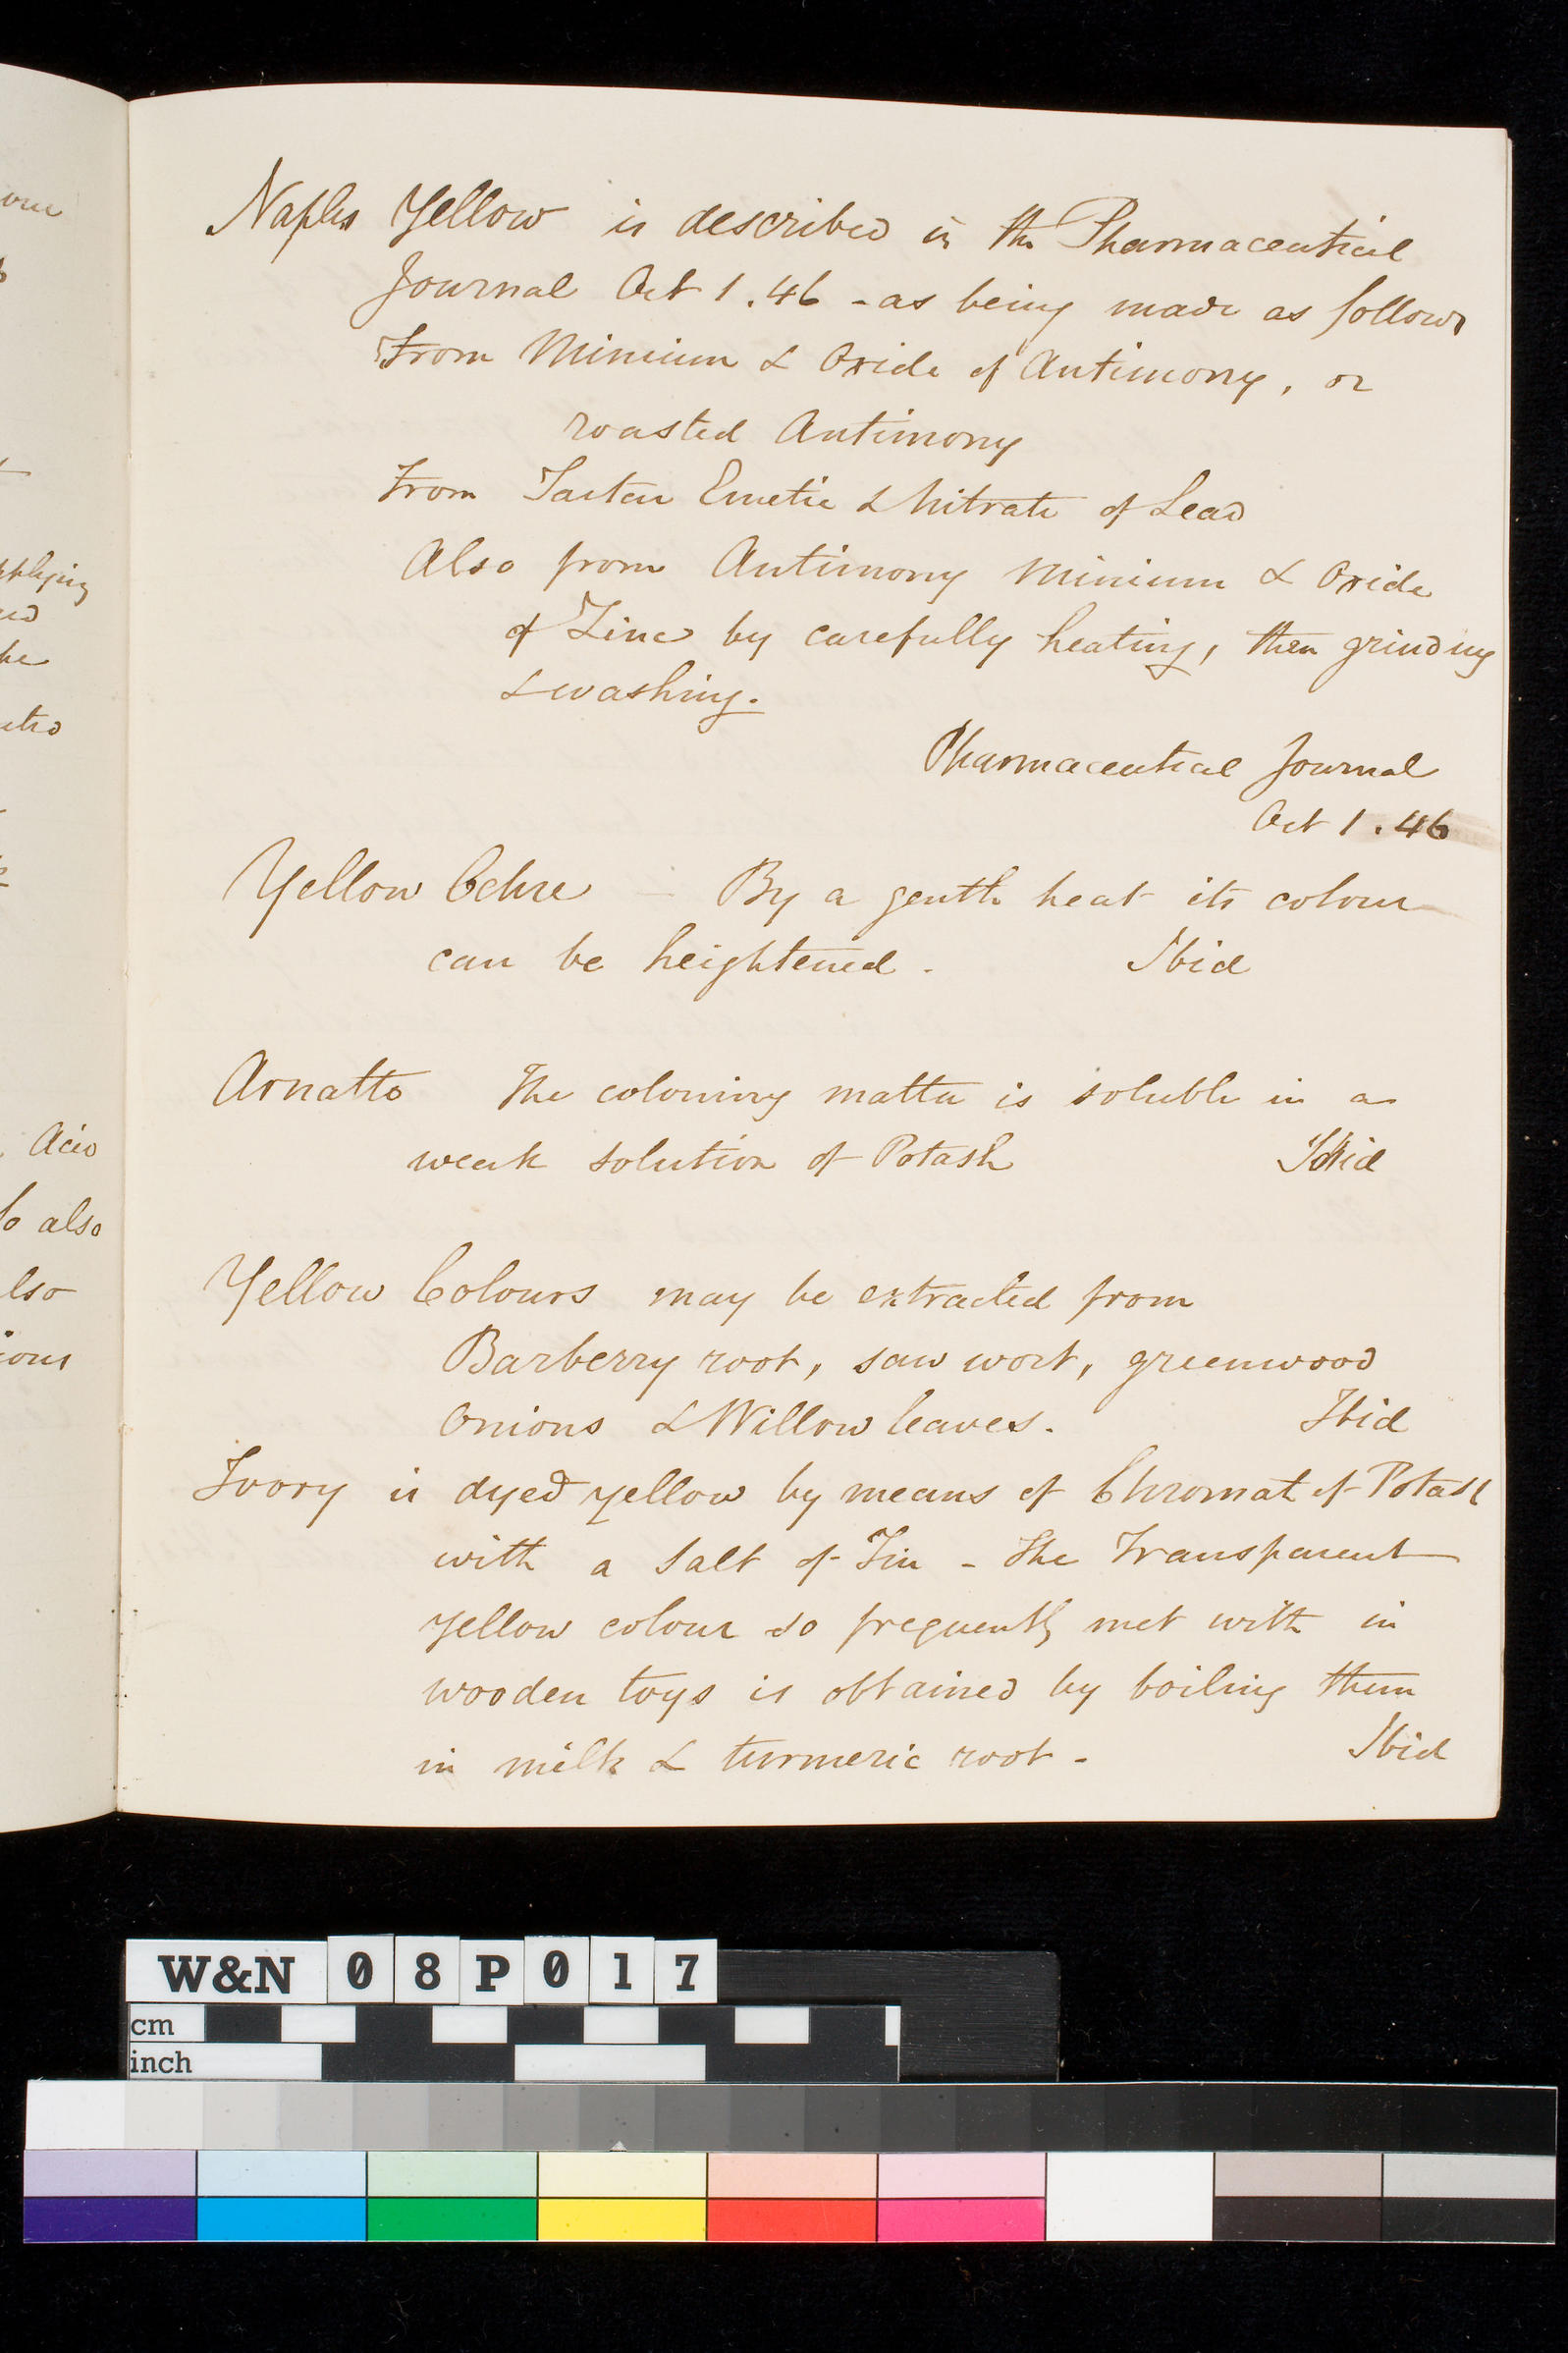 our
pplying
ed
he
Acid
so also
also
ions
Naples Yellow is described in the Pharmaceutical
Journal Oct 1.46 - as being made as follows
From Minium & Oxide of Antimony, or
roasted Antimony
From Tartar Emetic & Nitrate of Lead
Also from Antimony Minium & Oxide
of Zinc by carefully heating, then grinding
& washing.
Pharmaceutical Journal
Oct 1.46
Yellow Ochre - By a gentle heat its colour
can be heightened. Ibid
Arnatto The colouring matter is soluble in a
weak solution of Potash Ibid
Yellow Colours may be extracted from
Barberry root, saw wort, greenwood
Onions & Willow leaves. Ibid
Ivory is dyed yellow by means of Chromate of Potash
with a Salt of Tin - The Transparent
yellow colour so frequently met with in
wooden toys is obtained by boiling them
in milk & turmeric root - Ibid
W&N 08P017
cm
inch